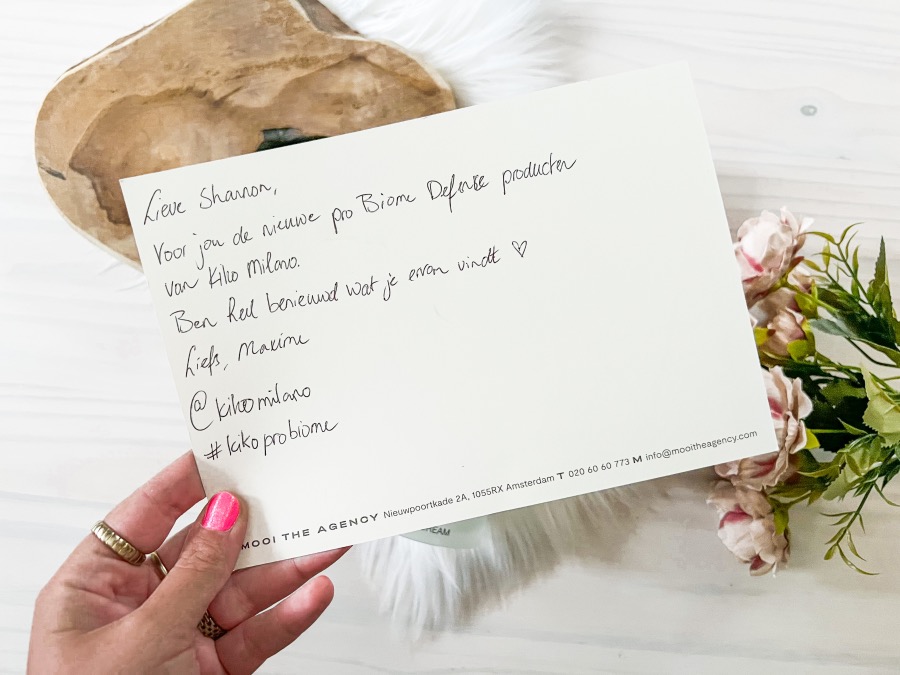 Lieve Shannon,
Voor jou de nieuwe pro Biome Defense producten
van Kiko Milano.
Ben heel benieuwd wat je ervan vindt ♡
Liefs, Maxime
@kikomilano
#kikoprobiome
MOOI THE AGENCY Nieuwpoortkade 2A, 1055RX Amsterdam T 020 60 60 773 M info@mooitheagency.com